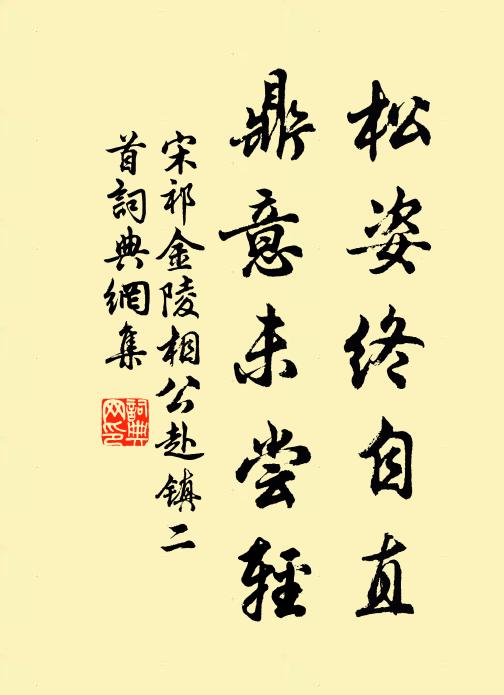 松姿终自直
鼎意未尝輕
宋祁金陵相公赴镇二
首詞典網集
詞典网印